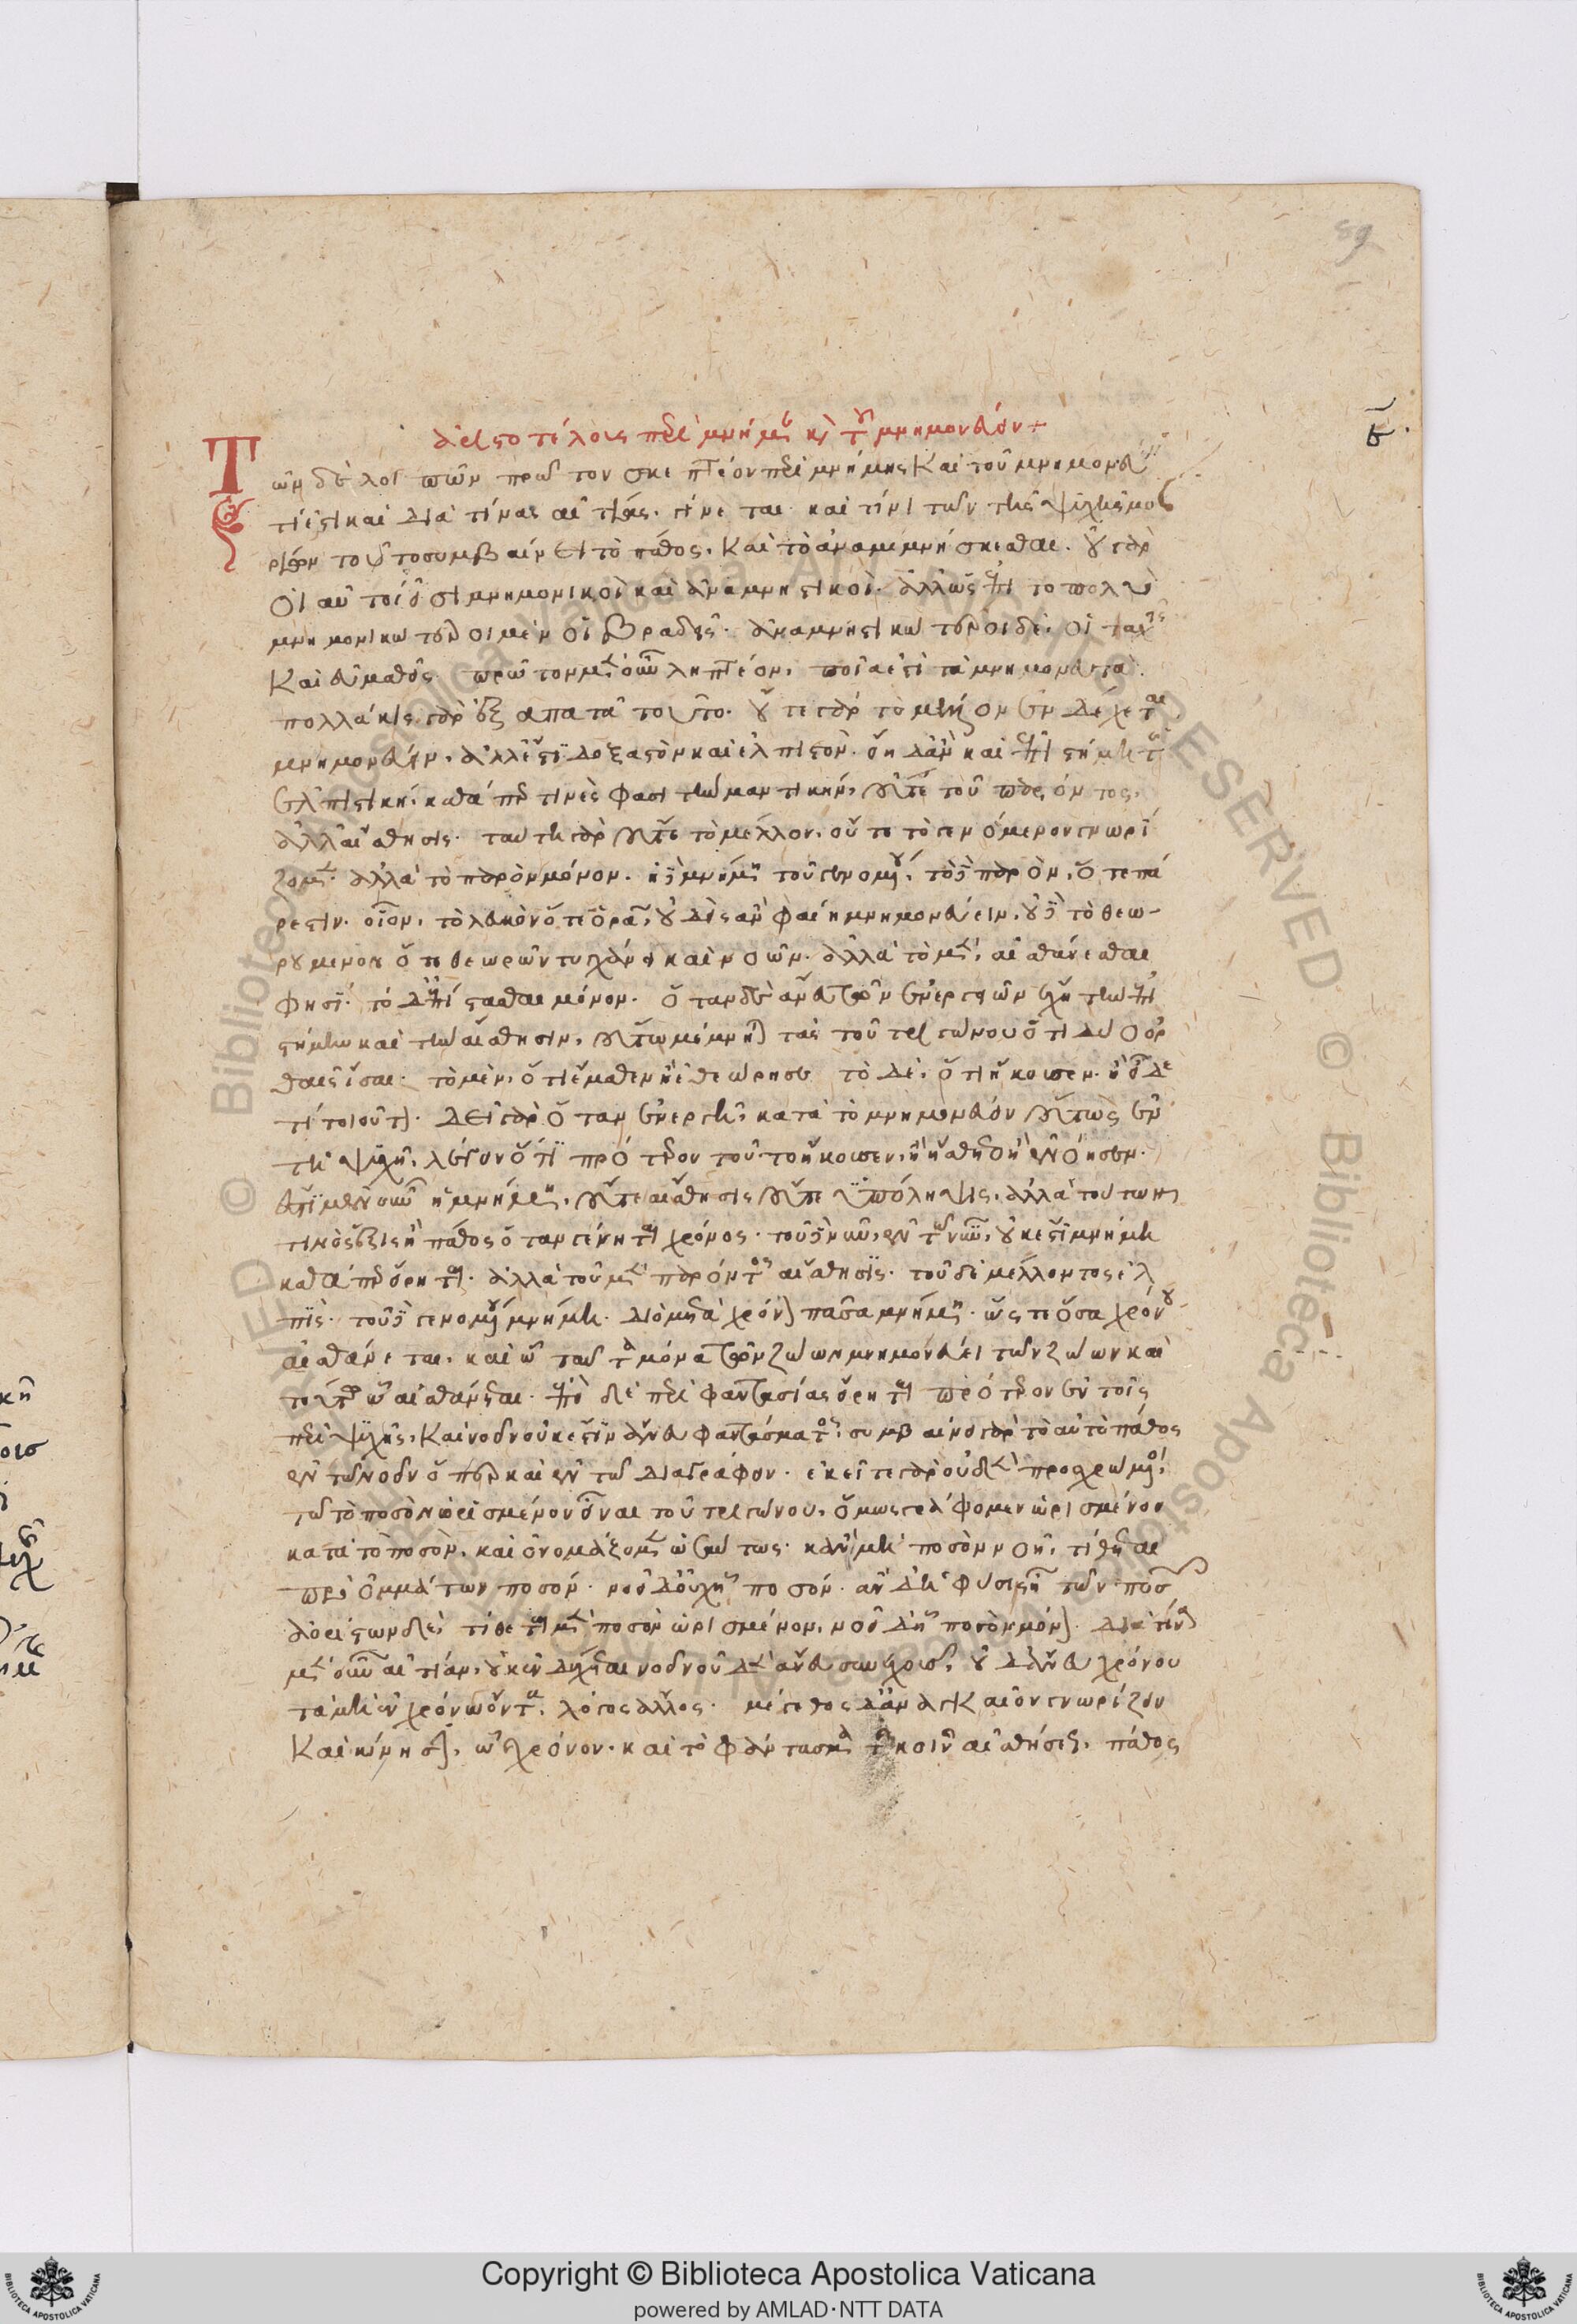 89
β.
ἀριστοτέλους περὶ μνήμης καὶ τοῦ μνημονεύειν +
Τῶν δὲ λοιπῶν πρῶτον σκεπτέον περὶ μνήμης καὶ τοῦ μνημονεύειν
τί ἐστι καὶ διὰ τίνας αἰτίας γίνεται καὶ τίνι τῶν τῆς ψυχῆς μο
ρίων τοῦτο συμβαίνει τὸ πάθος. καὶ τὸ ἀναμιμνήσκεσθαι. οὐ γὰρ
οἱ αὐτοί εἰσι μνημονικοὶ καὶ ἀναμνηστικοί. ἀλλ' ὡς ἐπὶ τὸ πολὺ
μνημονικώτεροι μὲν οἱ βραδεῖς. ἀναμνηστικώτεροι δὲ, οἱ ταχεῖς
καὶ εὐμαθεῖς. πρῶτον μὲν οὖν ληπτέον, ποῖά ἐστι τὰ μνημονευτά.
πολλάκις γὰρ ἐξαπατᾷ τοῦτο. οὔτε γὰρ τὸ μέλλον ἐνδέχεται
μνημονεύειν, ἀλλ' ἔστι δοξαστὸν καὶ ἐλπιστόν. εἴη δ' ἂν καὶ ἐπιστήμη τις
ἐλπιστική, καθάπερ τινές φασι τὴν μαντικήν, οὔτε τοῦ παρόντος,
ἀλλ' αἴσθησις. ταύτῃ γὰρ οὔτε τὸ μέλλον, οὔτε τὸ γενόμενον γνωρί
ζομεν. ἀλλὰ τὸ παρὸν μόνον. ἡ δὲ μνήμη τοῦ γενομένου, τὸ δὲ παρὸν, ὅτε πά
ρεστιν. οἷον, τὸ λευκὸν ὅτε ὁρᾷ, οὐδεὶς ἂν φαίη μνημονεύειν, οὐδὲ τὸ θεω-
ρούμενον ὅτε θεωρῶν τυγχάνει καὶ νοῶν. ἀλλὰ τὸ μὲν, αἰσθάνεσθαι
φησί. τὸ δ' ἐπίστασθαι μόνον. ὅταν δ' ἄνευ τῶν ἐνεργειῶν ἔχῃ τὴν ἐπι
στήμην καὶ τὴν αἴσθησιν, οὕτω μέμνηται τὰς τοῦ τριγώνου ὅτι δύο ὀρ
θαῖς ἴσαι. τὸ μὲν, ὅτι ἔμαθεν ἢ ἐθεώρησεν τὸ δὲ, ὅτι ἤκουσεν. ἢ εἶδε
τί τοιοῦτον. δεῖ γὰρ ὅταν ἐνεργῇ κατὰ τὸ μνημονεύειν οὕτως ἐν
τῇ ψυχῇ λέγειν ὅτι πρότερον τοῦτο ἤκουσεν, ἢ ᾔσθετο ἢ ἐνόησεν.
ἔστι μὲν οὖν ἡ μνήμη, οὔτε αἴσθησις οὔτε ὑπόληψις, ἀλλὰ τούτων
τινὸς ἕξις ἢ πάθος ὅταν γένηται χρόνος. τοῦ δὲ νῦν, ἐν τῷ νῦν, οὐκ ἔστι μνήμη
καθάπερ εἴρηται. ἀλλὰ τοῦ μὲν παρόντος αἴσθησις. τοῦ δὲ μέλλοντος ἐλ
πίς. τοῦ δὲ γενομένου μνήμη. διὸ μετὰ χρόνου πᾶσα μνήμη. ὥστε ὅσα χρόνου
αἰσθάνεται, καὶ ᾧ ταῦτα μόνα τῶν ζώων μνημονεύει τῶν ζώων καὶ
τούτῳ ᾧ αἰσθάνεται. ἐπεὶ δὲ περὶ φαντασίας εἴρηται πρότερον ἐν τοῖς
περὶ ψυχῆς, καὶ νοεῖν οὐκ ἔστιν ἄνευ φαντάσματος. συμβαίνει γὰρ τὸ αὐτὸ πάθος
ἐν τῷ νοεῖν ὅπερ καὶ ἐν τῷ διαγράφειν. ἐκεῖ τε γὰρ οὐδὲν προσχρώμενοι
τῷ τὸ ποσὸν ὡρισμένον εἶναι τοῦ τριγώνου, ὅμως γράφομεν ὡρισμένον
κατὰ τὸ ποσόν, καὶ ὁ νοῶν ὡσαύτως. κἂν μὴ ποσὸν νοῇ, τίθεται
πρὸ ὀμμάτων ποσόν. νοεῖ δ' οὐχ ᾗ ποσόν. ἂν δ' ἡ φύσις ᾖ τῶν ποσῶν
ἀορίστων δὲ, τίθεται μὲν ποσὸν ὡρισμένον, νοεῖ δ' ᾗ ποσὸν μόνον. διὰ τίνα
μὲν οὖν αἰτίαν, οὐκ ἐνδέχεται νοεῖν οὐδὲν ἄνευ συνεχοῦς, οὐδ' ἄνευ χρόνου
τὰ μὴ ἐν χρόνῳ ὄντα, λόγος ἄλλος. μέγεθος δ' ἀναγκαῖον γνωρίζειν
καὶ κίνησιν, ᾧ καὶ χρόνον. καὶ τὸ φάντασμα τῆς κοινῆς αἰσθήσεως πάθος
Copyright © Biblioteca Apostolica Vaticana
powered by AMLAD·NTT DATA